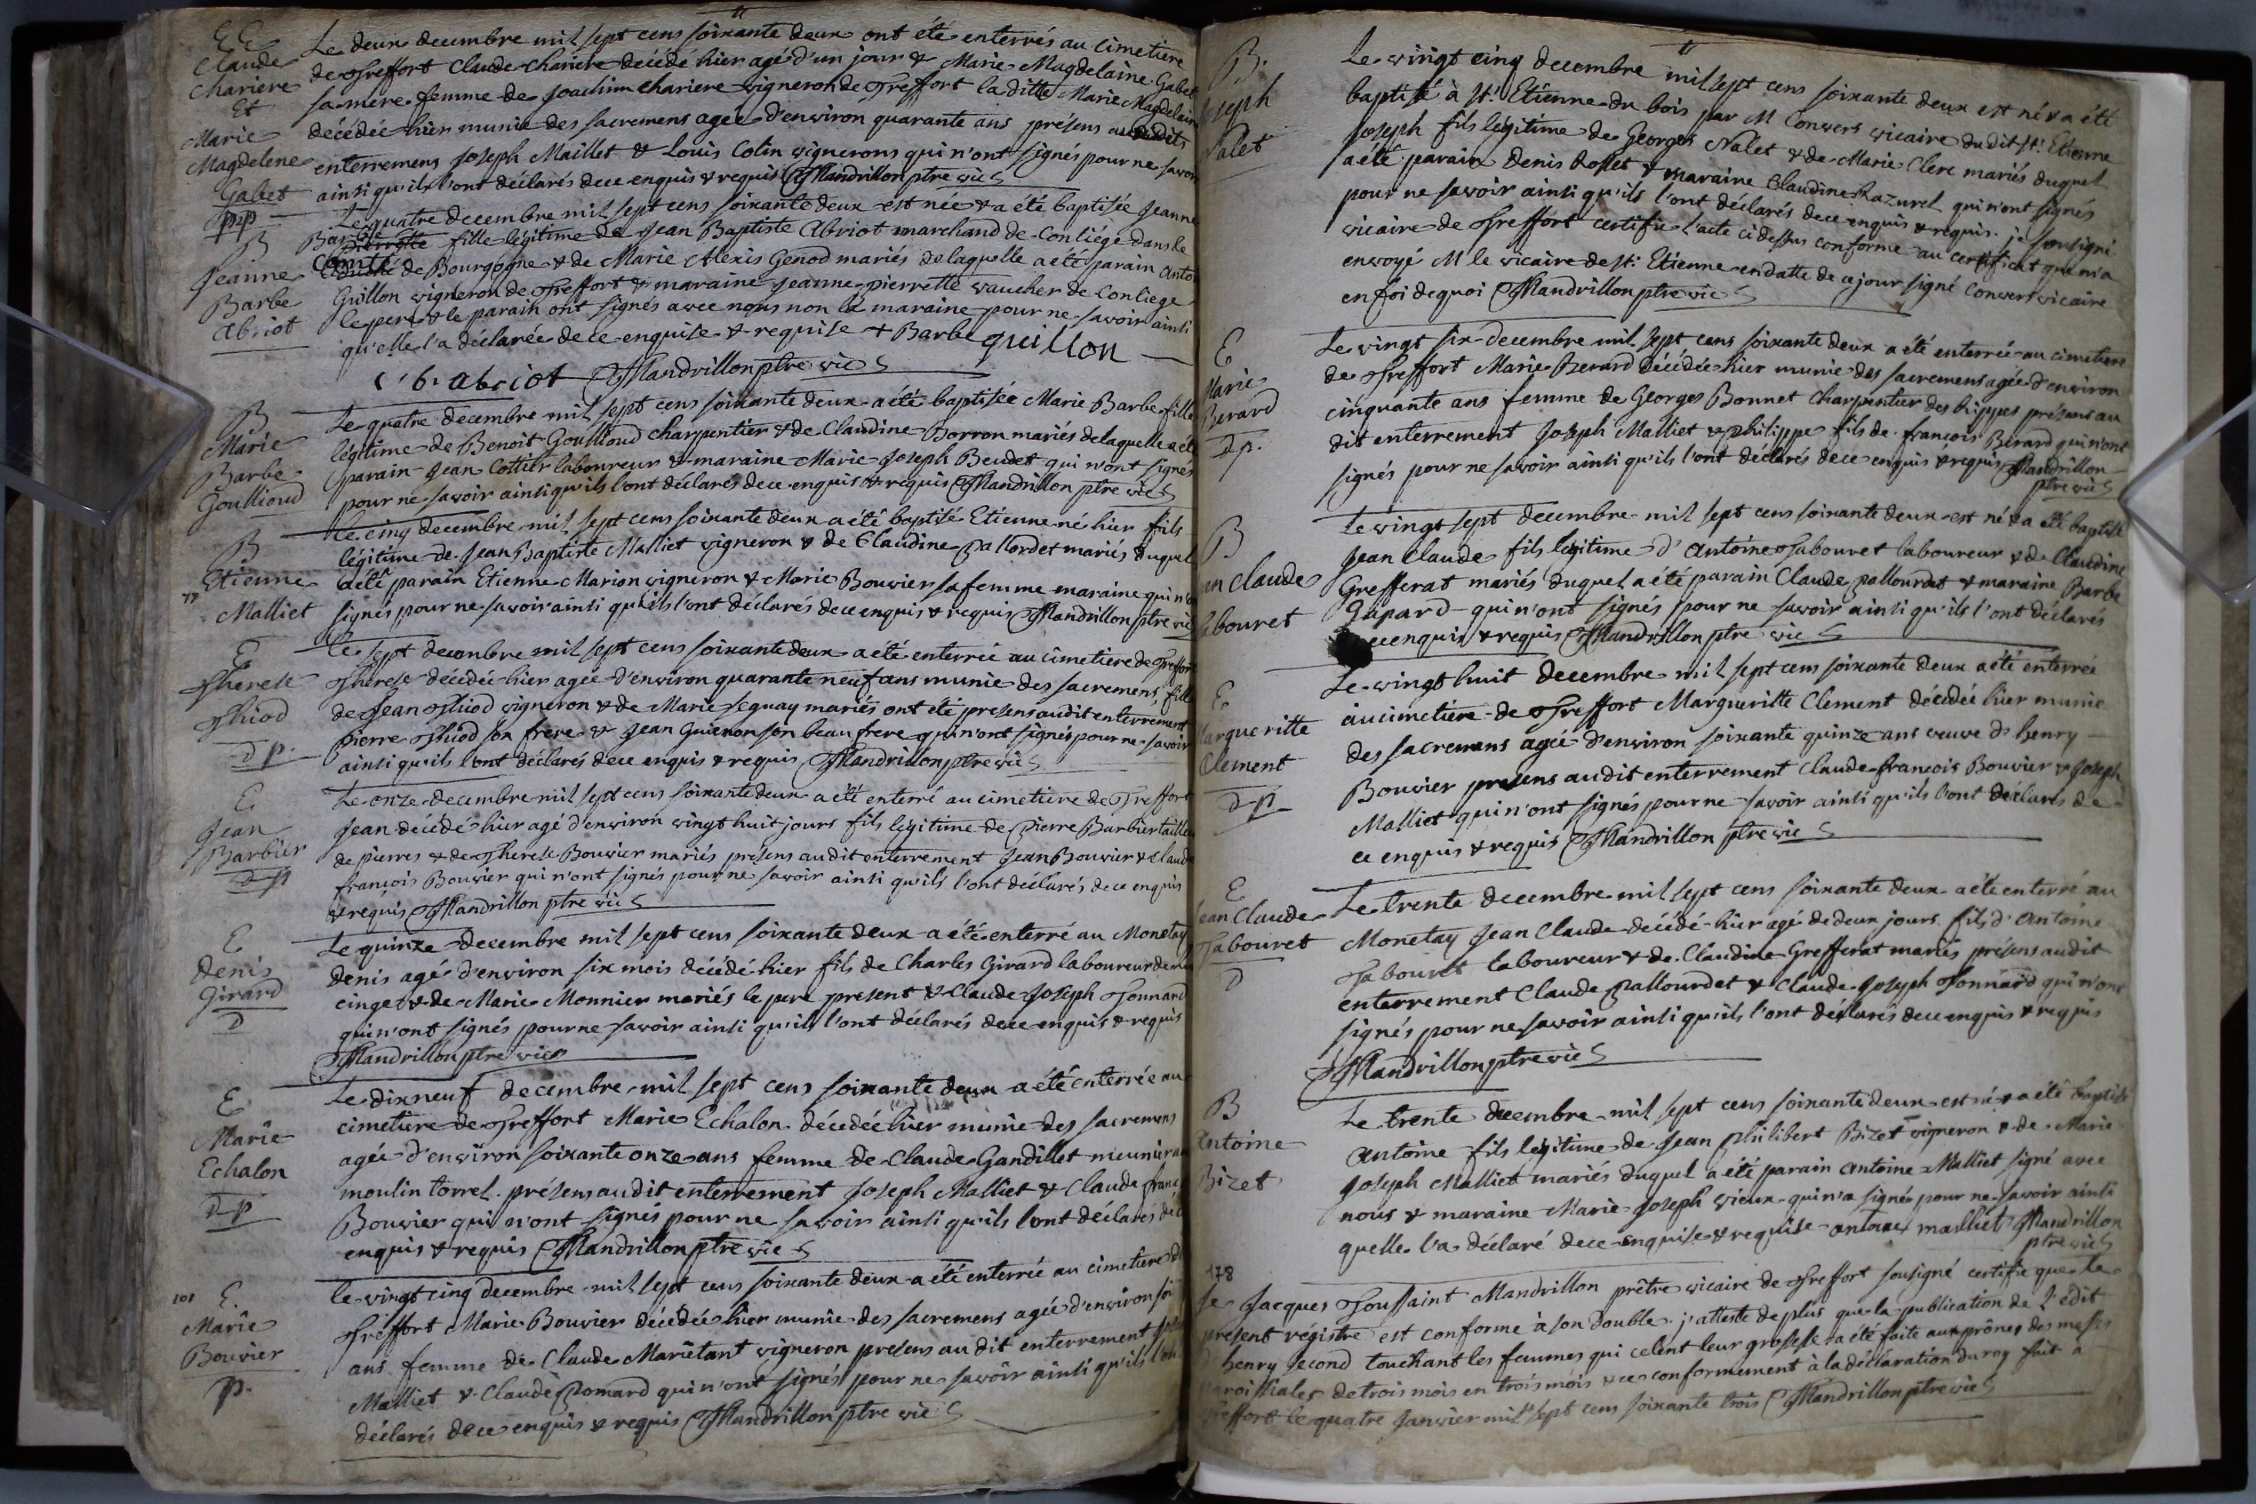 E E
Claude
Chariere
Et
Marie
Magdelene
Gabet
pp
Le deux decembre mil sept cens soixante deux ont été enterrés au cimetiere
de Treffort Claude Chariere décédé hier agé d'un jour & Marie Magdelaine Gabet
sa mere femme de Joachim Chariere vigneron de Treffort la ditte Marie Magdelaine
décédée hier munie des sacremens agée d'environ quarante ans présens audits
enterremens Joseph Malliet & Louis Colin vignerons qui n'ont signés pour ne savoir
ainsi qu'ils l'ont déclarés de ce enquis & requis Mandrillon ptre vic
B
Jeanne
Barbe
Abriot
Le quatre decembre mil sept cens soixante deux est née & a été baptisée Jeanne
Barbe fille légitime de Jean Baptiste Abriot marchand de Conliége dans le
Comté de Bourgogne & de Marie Alexis Genod mariés de laquelle a été parain Antoi
Guillon vigneron de Treffort & maraine Jeanne pierrette vaucher de Conliege
le pere & le parain ont signés avec nous non la maraine pour ne savoir ainsi
qu'elle l'a déclarée de ce enquise & requise + Barbe guillon
J b abriot Mandrillon ptre vic
B
Marie
Barbe
Goullioud
Le quatre decembre mil sept cens soixante deux a été baptisée Marie Barbe fille
légitime de Benoit Goullioud charpentier & de Claudine Borron mariés de laquelle a été
parain Jean Cottier laboureur & maraine Marie Joseph Beudet qui n'ont signés
pour ne savoir ainsi qu'ils l'ont déclarés de ce enquis & requis Mandrillon ptre vic
B
Etienne
77
Malliet
Le cinq decembre mil sept cens soixante deux a été baptisé Etienne né hier fils
légitime de Jean Baptiste Malliet vigneron & de Claudine Pallordet mariés duquel
a été parain Etienne Marion vigneron & Marie Bouvier sa femme maraine qui n'on
signés pour ne savoir ainsi qu'ils l'ont déclarés de ce enquis & requis Mandrillon ptre vic
E
Therese
Thiod
D p.
Le sept decembre mil sept cens soixante deux a été enterrée au cimetiere de Treffort
Therese décédée hier agée d'environ quarante neuf ans munie des sacremens fille
de Jean Thiod vigneron & de Marie Seguay mariés ont été presens audit enterrement
pierre Thiod son frere & Jean Guienon son beau frere qui n'ont signés pour ne savoir
ainsi qu'ils l'ont déclarés de ce enquis & requis Mandrillon ptre vic
E
Jean
Barbier
D p
Le onze decembre mil sept cens soixante deux a été enterré au cimetiere de Treffort
Jean décédé hier agé d'environ vingt huit jours fils légitime de Pierre Barbier tailleu
de pierres & de Therese Bouvier mariés présens audit enterrement Jean Bouvier & Claude
françois Bouvier qui n'ont signés pour ne savoir ainsi qu'ils l'ont déclarés de ce enquis
& requis Mandrillon ptre vic
E
Denis
Girard
D
Le quinze decembre mil sept cens soixante deux a été enterré au Monetay
Denis agé d'environ six mois décédé hier fils de Charles Girard laboureur de
cinge & de Marie Monnier mariés le pere présent & Claude Joseph Tonnard
qui n'ont signés pour ne savoir ainsi qu'ils l'ont déclarés de ce enquis & requis
Mandrillon ptre vic
E
Marie
Echalon
D p
Le dix neuf decembre mil sept cens soixante deux a été enterrée au
cimetiere de Treffort Marie Echalon décédée hier munie des sacremens
agée d'environ soixante onze ans femme de Claude Gandillet meunier au
moulin torrel présens audit enterrement Joseph Malliet & Claude franc
Bouvier qui n'ont signés pour ne savoir ainsi qu'ils l'ont déclarés de c
enquis & requis Mandrillon ptre vic
101
E.
Marie
Bouvier
p.
Le vingt cinq decembre mil sept cens soixante deux a été enterrée au cimetiere d
Treffort Marie Bouvier décédée hier munie des sacremens agée d'environ soi
ans femme de Claude Mariétant vigneron presens au dit enterrement Jose
Malliet & Claude Pomard qui n'ont signés pour ne savoir ainsi qu'ils l'on
déclarés de ce enquis & requis Mandrillon ptre vic
B.
Joseph
Nalet
Le vingt cinq decembre mil sept cens soixante deux est né & a été
baptisé à St. Etienne du bois par M Convers vicaire du dit St. Etienne
Joseph fils légitime de Georges Nalet & de Marie Clerc mariés duquel
a été parain Denis Rollet & maraine Claudine Razurel qui n'ont signés
pour ne savoir ainsi qu'ils l'ont déclarés de ce enquis & requis. je soussigné
vicaire de Treffort certifie l'acte cidessus conforme au certificat que m'a
envoyé M le vicaire de St. Etienne en datte de ce jour signé Convers vicaire
en foi de quoi Mandrillon ptre vic
E
Marie
Berard
D p.
Le vingt six decembre mil sept cens soixante deux a été enterrée au cimetiere
de Treffort Marie Berard décédée hier munie des sacremens agée d'environ
cinquante ans femme de Georges Bonnet Charpentier des hippes présens au
dit enterrement Joseph Malliet & philippe fils de françois Berard qui n'ont
signés pour ne savoir ainsi qu'ils l'ont déclarés de ce enquis & requis Mandrillon
ptre vic
B
an Claude
abouret
Le vingt sept decembre mil sept cens soixante deux est né & a été baptisé
Jean Claude fils légitime d' antoine Tabouret laboureur & de Claudine
Grefferat mariés duquel a été parain Claude Pallourdet & maraine Barbe
Gapard qui n'ont signés pour ne savoir ainsi qu'ils l'ont déclarés
de ce enquis & requis Mandrillon ptre vic
E
argueritte
Clement
D p
Le vingt huit decembre mil sept cens soixante deux a été enterrée
au cimetiere de Treffort Margueritte Clement décédée hier munie
des sacremens agée d'environ soixante quinze ans veuve d'henry
Bouvier présens audit enterrement Claude françois Bouvier & Joseph
Malliet qui n'ont signés pour ne savoir ainsi qu'ils l'ont déclarés de
ce enquis & requis Mandrillon ptre vic
E
Jean Claude
Tabouret
D
Le trente decembre mil sept cens soixante deux a été enterré au
Monetay Jean Claude décédé hier agé de deux jours fils d'antoine
Tabouret laboureur & de Claudine Grefferat mariés présens audit
enterrement Claude Pallourdet & Claude Joseph Tonnard qui n'ont
signés pour ne savoir ainsi qu'ils l'ont déclarés de ce enquis & requis
Mandrillon ptre vic
B
Antoine
Bizet
Le trente decembre mil sept cens soixante deux est né & a été baptisé
antoine fils légitime de Jean philibert Bizet vigneron & de Marie
Joseph Malliet mariés duquel a été parain antoine Malliet signé avec
nous & maraine Marie Joseph vieux qui n'a signée pour ne savoir ainsi
quelle l'a déclaré de ce enquise & requise antoine malliet Mandrillon
ptre vic
178
Je Jacques Toussaint Mandrillon prêtre vicaire de Treffort sousigné certifie que le
présent régistre est conforme à son double. j'atteste de plus que la publication de l'edit
d'henry second touchant les femmes qui celent leur grossesse a été faite aux prônes des messes
paroissiales de trois mois en trois mois & ce conformement à la déclaration du roy fait a
Treffort le quatre Janvier mil sept cens soixante trois Mandrillon ptre vic